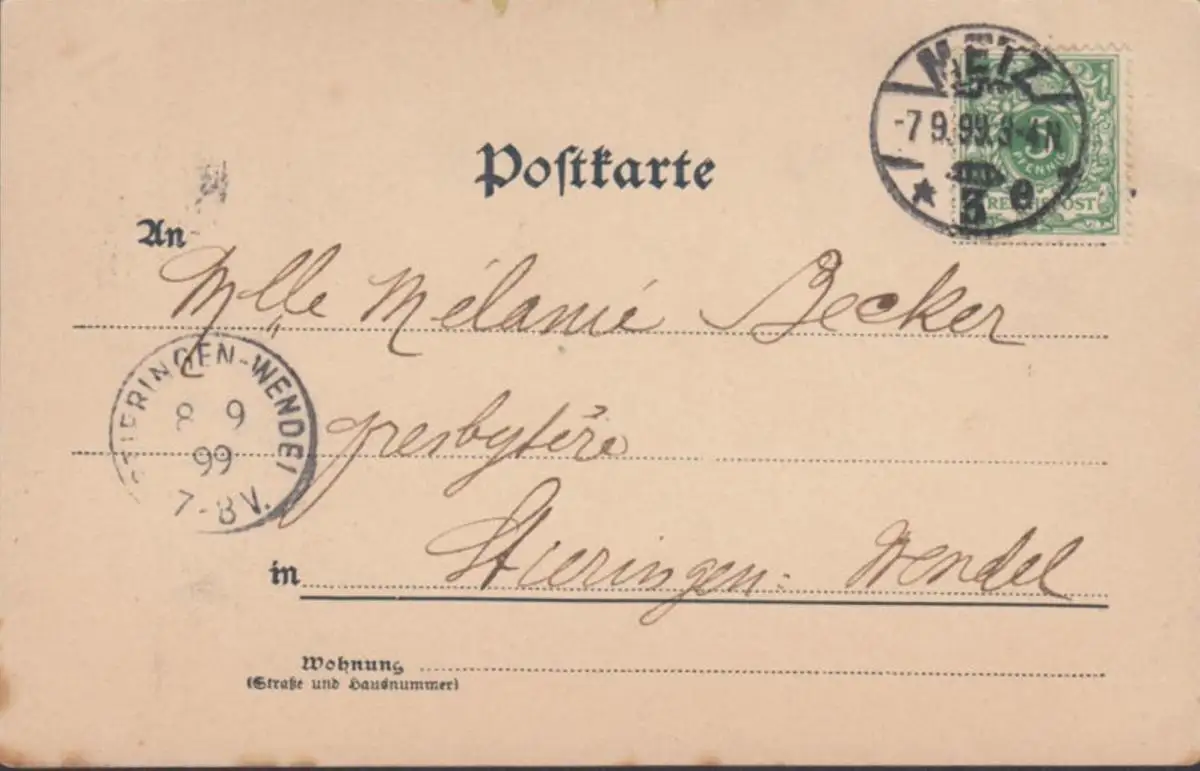 METZ
-7 9.99.3-4N
3 e
5
PFENNIG
REICHSPOST
Postkarte
An
Mlle Mélanie Becker
STIERINGEN-WENDEL
8 9
99
7-8V.
presbytère
in Stieringen-Wendel
Wohnung
(Straße und Hausnummer)